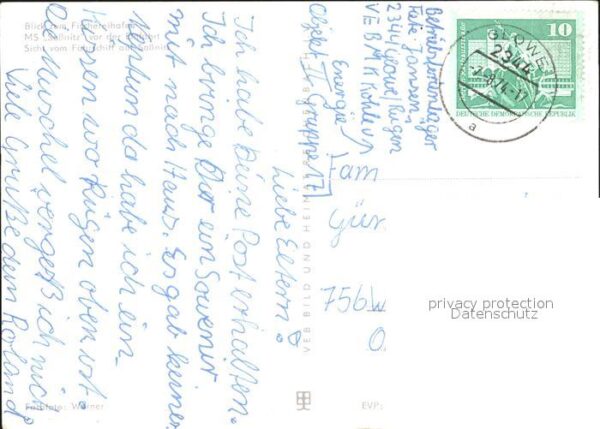 Blick zum Fischereihafen
MS "Saßnitz" vor der Abfahrt
Sicht vom Fährschiff auf Saßnitz
Liebe Eltern!
Ich habe Deine Post erhalten.
Ich bringe Dir ein Souvenir
mit nach Haus. Es gab keinen
Neptun da habe ich ein
Kissen wo Rügen oben ist.
O. Muschel vergeß ich nich
Viele Grüße dein Roland
Farbfoto: Werner
VEB BILD UND HEIMAT
EVP:
Betriebsferienlager
2344 Glowe/Rügen
VEB BMK Kohle u.
Energie
Objekt II Gruppe 17
Fam
Gün
756 W
GLOWE
2344
-2.8.74-17
a
10
DEUTSCHE DEMOKRATISCHE REPUBLIK
privacy protection
Datenschutz